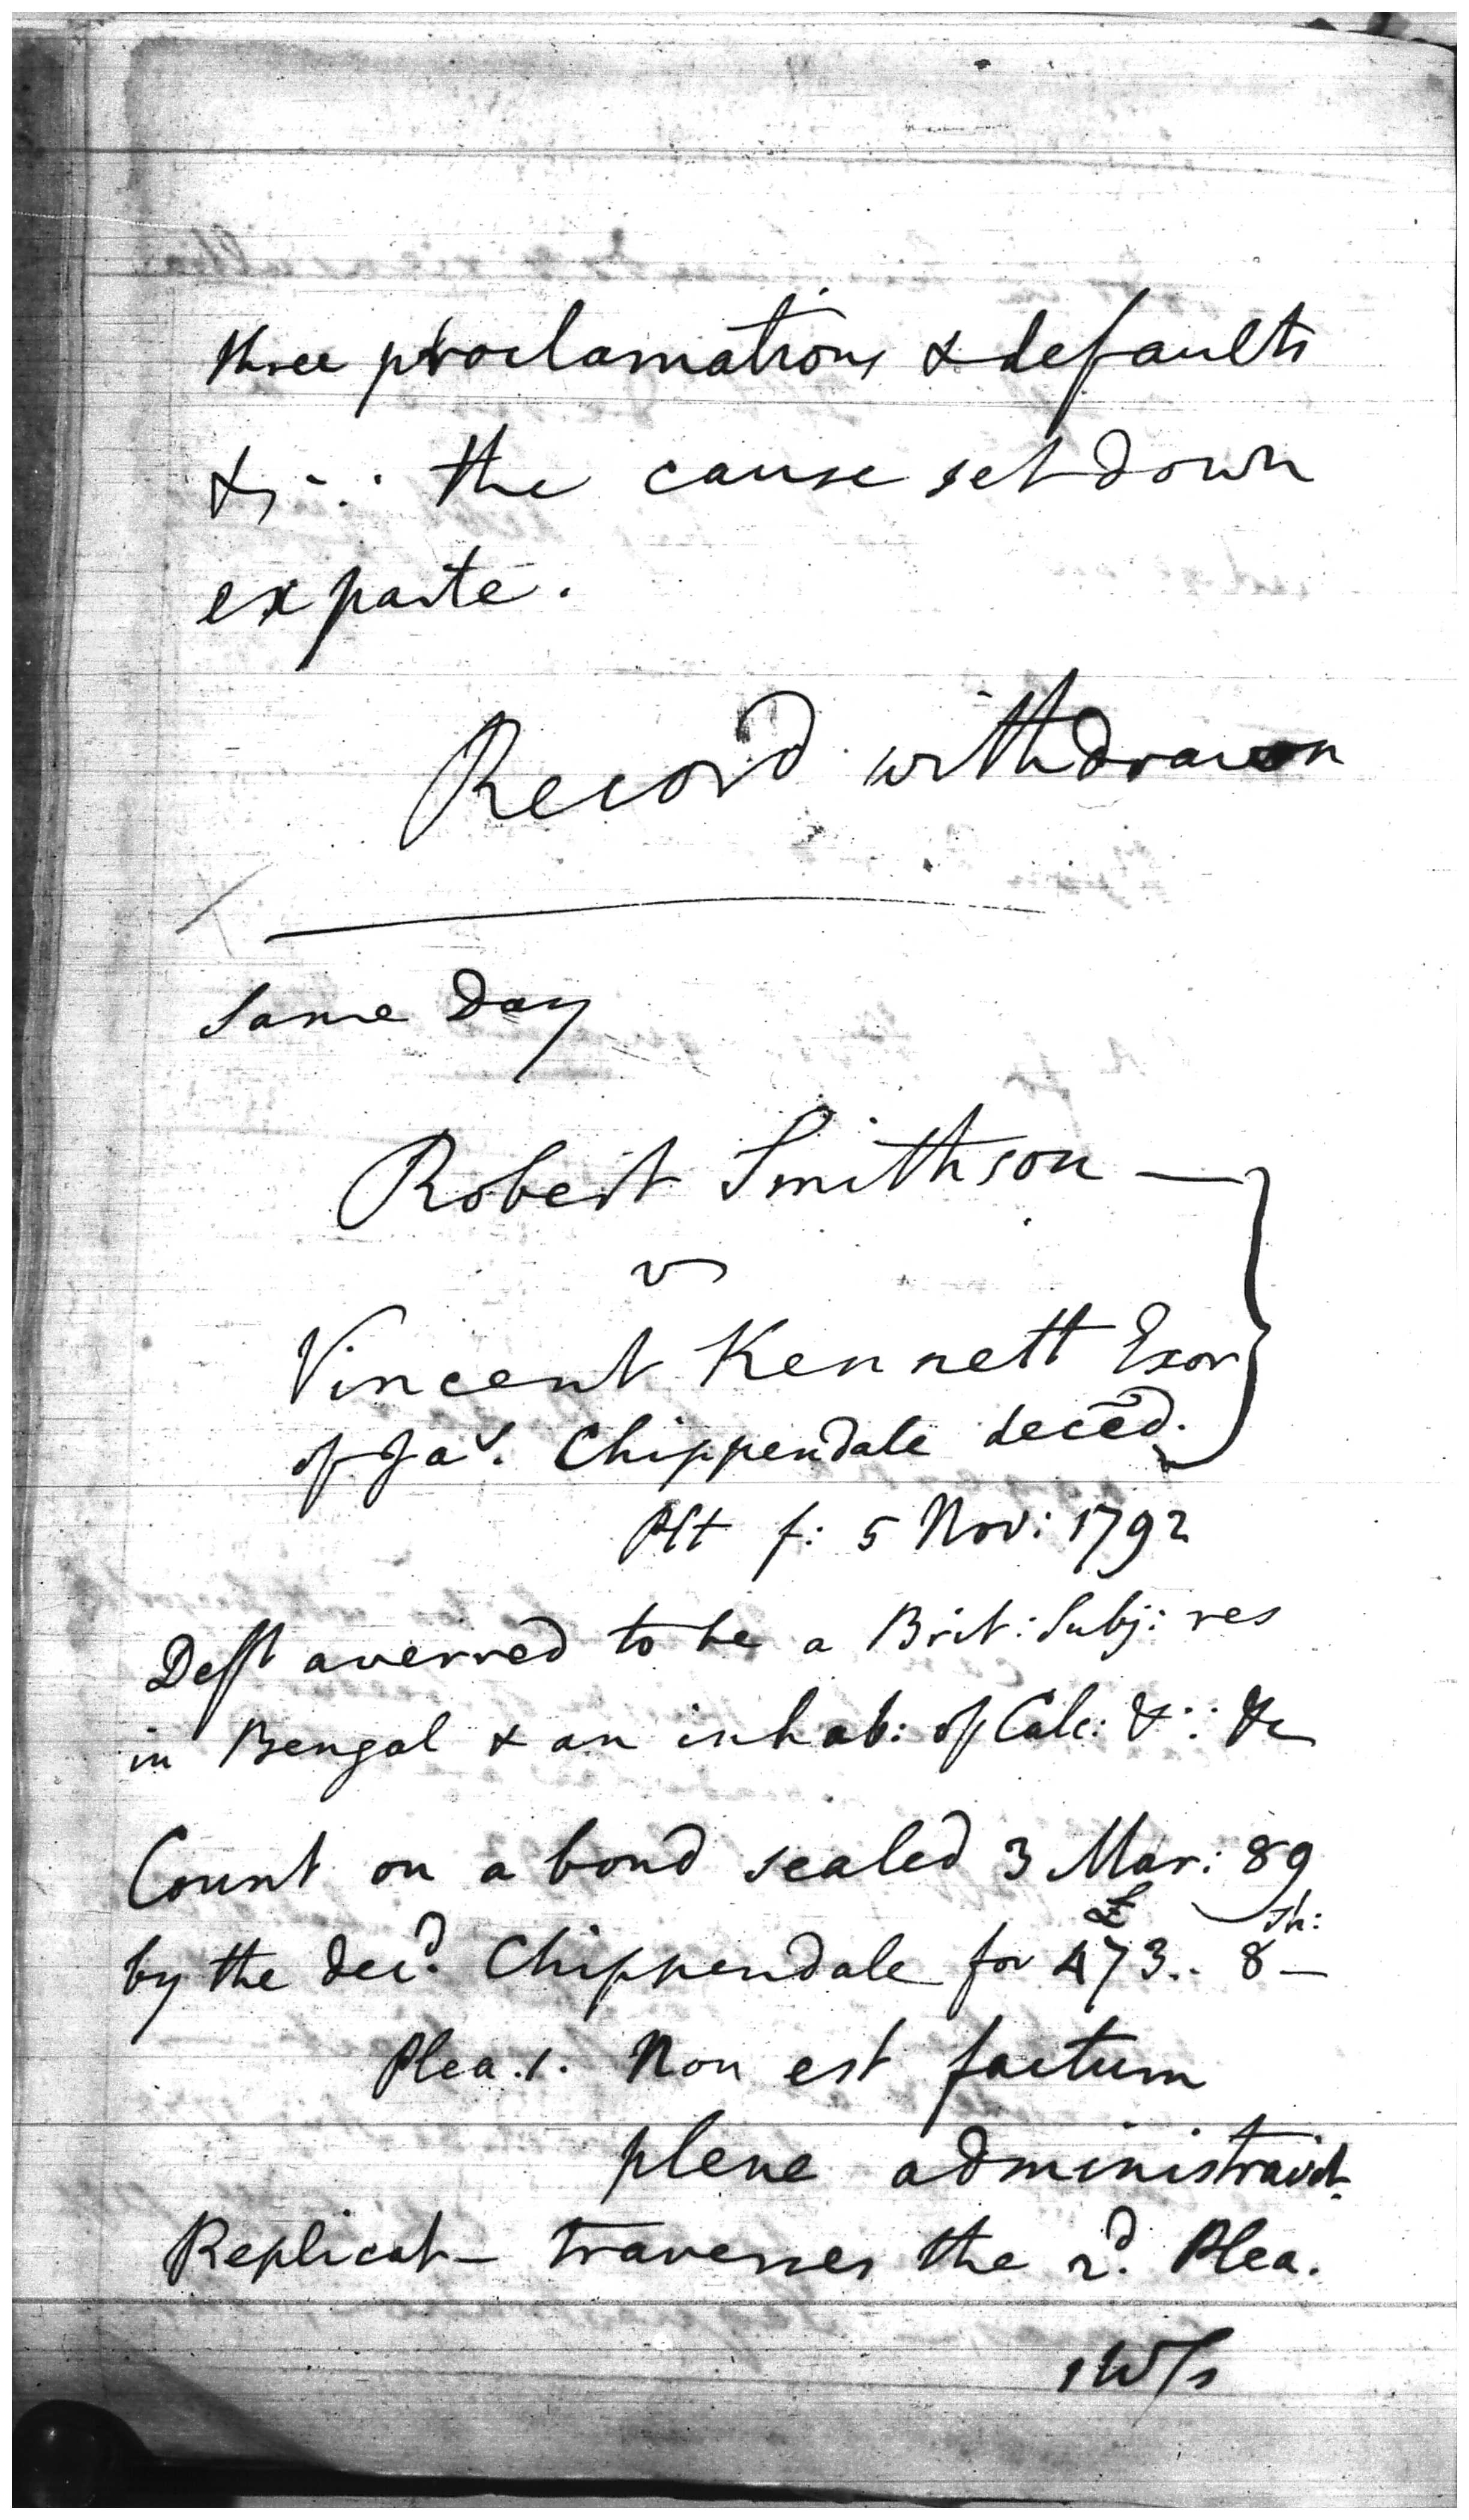 three proclamations & defaults
& ∴ the cause set down
ex parte.
Record withdrawn
Same Day
Robert Smithson —
v
Vincent Kennett Exor
of Jas. Chippendale decēd.
Plt f: 5 Nov: 1792
Deft averred to be a Brit: Subj: res
in Bengal & an inhab: of Calc: & ∵ &c
Count on a bond sealed 3 Mar: 89
by the decd. Chippendale for £473.. 8 sh: —
Plea. 1. Non est factum
plene administravit.
Replicat — traverses the 2d. Plea.
1 W/s